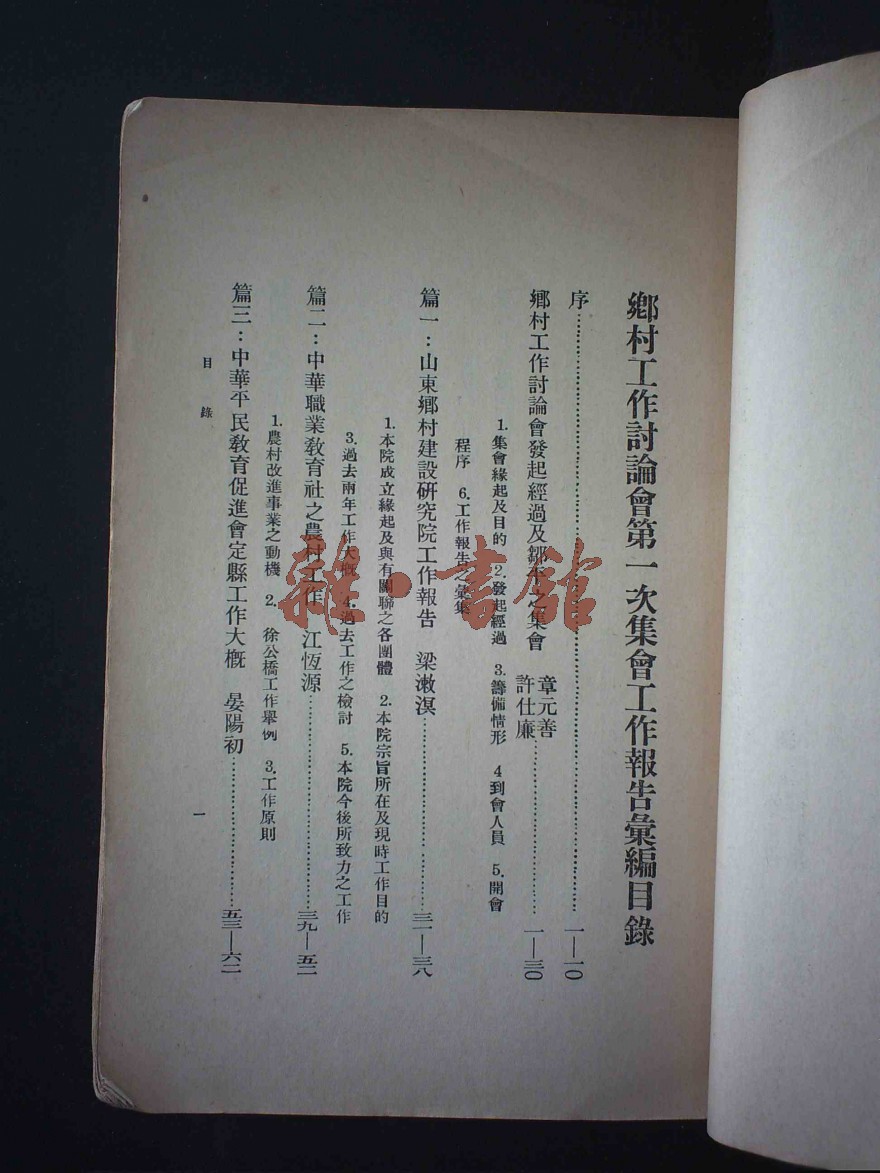 鄉村工作討論會第一次集會工作報告彙編目錄
序……一—一〇
鄉村工作討論會發起經過及鄒平之集會 章元善 許仕廉……一—三〇
1.集會緣起及目的 2.發起經過 3.籌備情形 4到會人員 5.開會
程序 6.工作報告之彙集
篇一：山東鄉村建設研究院工作報告 梁漱溟……三一—三八
1.本院成立緣起及與有關聯之各團體 2.本院宗旨所在及現時工作目的
3.過去兩年工作大概 4.過去工作之檢討 5.本院今後所致力之工作
篇二：中華職業教育社之農村工作 江恆源……三九—五二
1.農村改進事業之動機 2.徐公橋工作舉例 3.工作原則
篇三：中華平民教育促進會定縣工作大概 晏陽初……五三—六二
目錄
一
雜·書館